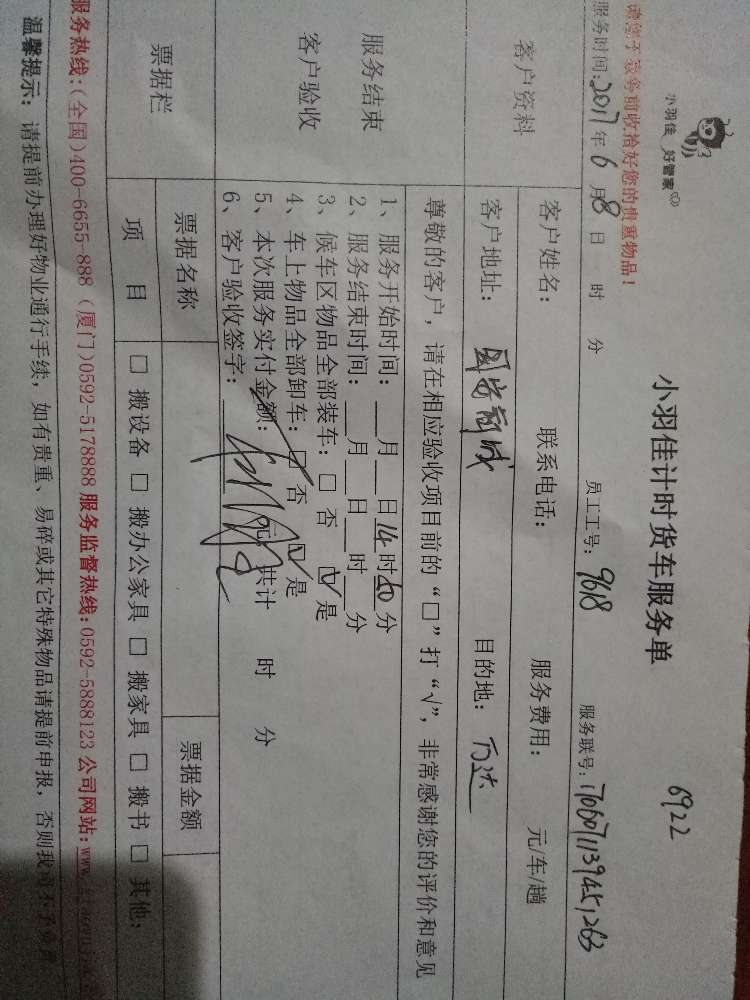 小羽佳 好管家
6922
小羽佳计时货车服务单
请您于服务前收拾好您的贵重物品！
服务时间：2017年6月8日 时 分 员工工号：9618 服务联号：
客户资料
客户姓名： 联系电话： 服务费用： 元/车/趟
客户地址： 目的地：万达
尊敬的客户，请在相应验收项目前的“□”打“√”，非常感谢您的评价和意见
服务结束
客户验收
1、服务开始时间：___月___日14时40分
2、服务结束时间：___月___日___时___分
3、候车区物品全部装车：□ 否 ☑ 是
4、车上物品全部卸车：□ 否 ☑ 是
5、本次服务实付金额： 元 共计 时 分
6、客户验收签字：
票据栏
票据名称 票据金额
项 目 □ 搬设备 □ 搬办公家具 □ 搬家具 □ 搬书 □ 其他：
服务热线：(全国)400-6655-888 (厦门)0592-5178888 服务监督热线：0592-5888123 公司网站：www.
温馨提示：请提前办理好物业通行手续，如有贵重、易碎或其它特殊物品请提前申报，否则我司不予